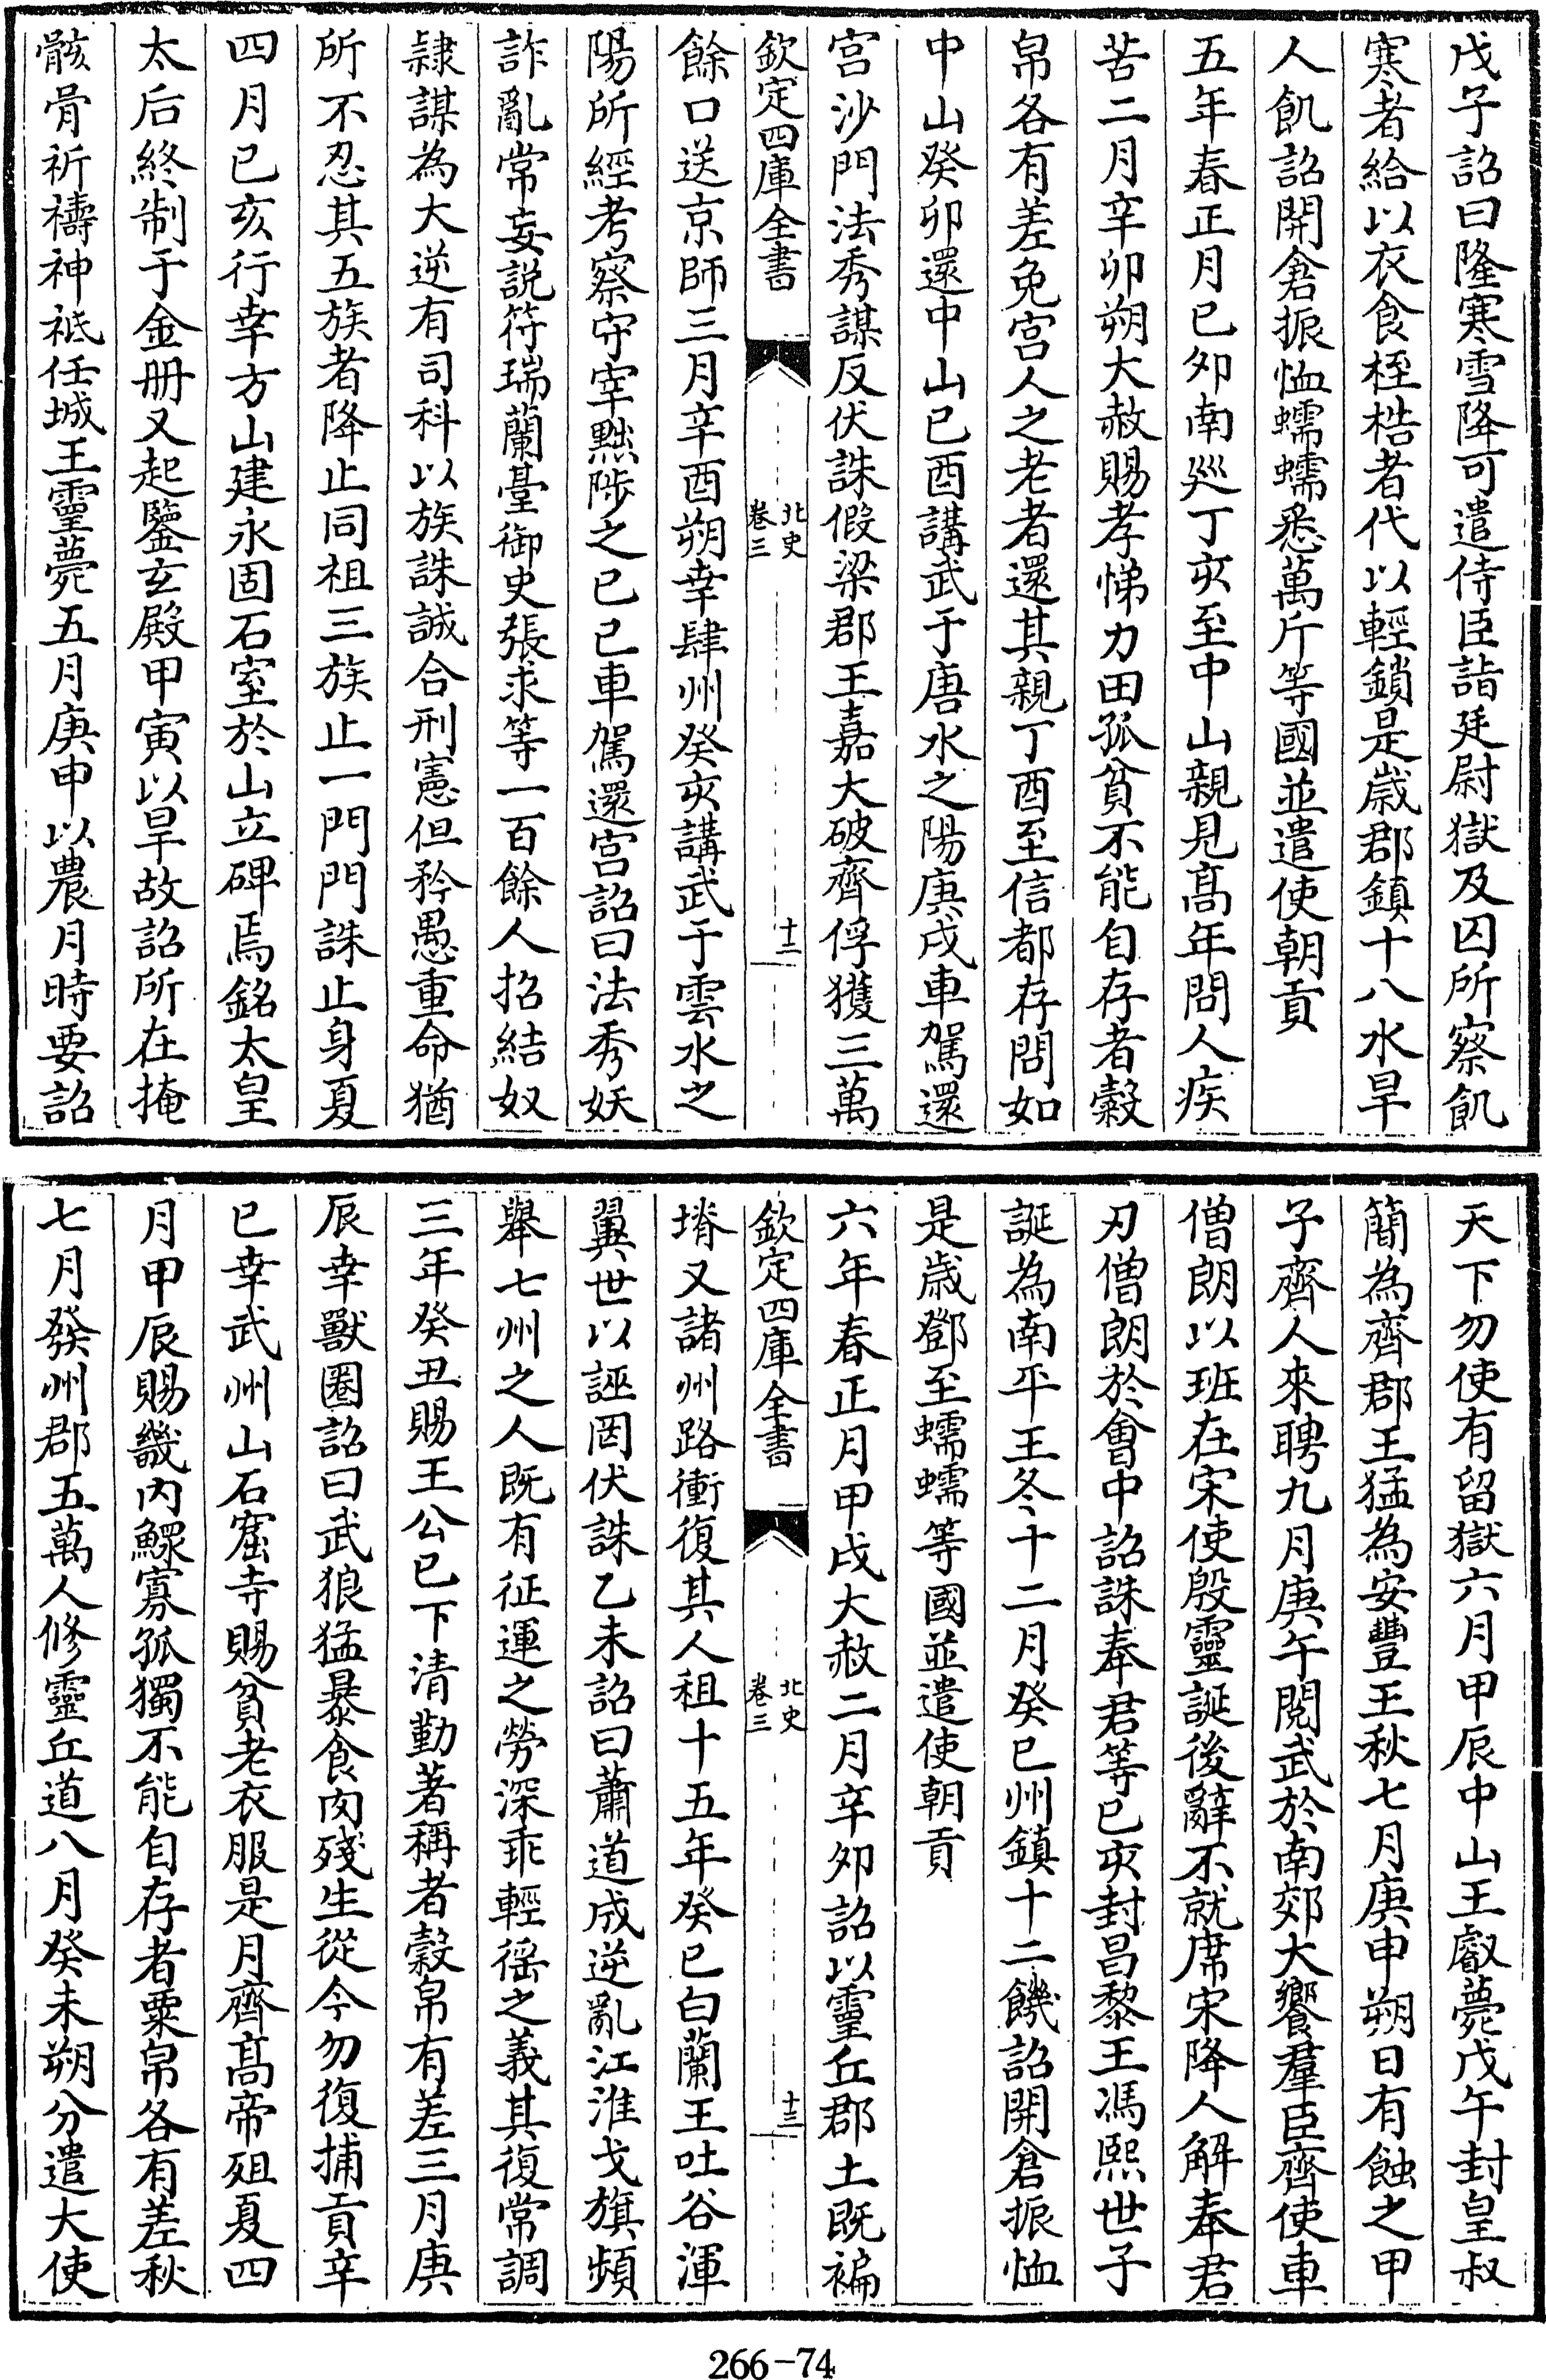 戊子詔曰隆寒雪降可遣侍臣詣廷尉獄及囚所察飢
寒者給以衣食桎梏者代以輕鎖是歲郡鎮十八水旱
人飢詔開倉振恤蠕蠕悉萬斤等國並遣使朝貢
五年春正月已夘南巡丁亥至中山親見髙年問人疾
苦二月辛卯朔大赦賜孝悌力田孤貧不能自存者穀
帛各有差免宫人之老者還其親丁酉至信都存問如
中山癸卯還中山已酉講武于唐水之陽庚戌車駕還
宫沙門法秀謀反伏誅假梁郡王嘉大破齊俘獲三萬
欽定四庫全書
北史
卷三
十二
餘口送京師三月辛酉朔幸肆州癸亥講武于雲水之
陽所經考察守宰黜陟之已已車駕還宫詔曰法秀妖
詐亂常妄説符瑞蘭臺御史張求等一百餘人招結奴
隷謀為大逆有司科以族誅誠合刑憲但矜愚重命猶
所不忍其五族者降止同祖三族止一門門誅止身夏
四月已亥行幸方山建永固石室於山立碑焉銘太皇
太后終制于金册又起鑒玄殿甲寅以旱故詔所在掩
骸骨祈禱神祗任城王雲薨五月庚申以農月時要詔
天下勿使有留獄六月甲辰中山王叡薨戊午封皇叔
簡為齊郡王猛為安豐王秋七月庚申朔日有蝕之甲
子齊人來聘九月庚午閱武於南郊大饗羣臣齊使車
僧朗以班在宋使殷靈誕後辭不就席宋降人解奉君
刃僧朗於會中詔誅奉君等已亥封昌黎王馮熙世子
誕為南平王冬十二月癸已州鎮十二饑詔開倉振恤
是歲鄧至蠕蠕等國並遣使朝貢
六年春正月甲戌大赦二月辛夘詔以靈丘郡土既褊
欽定四庫全書
北史
卷三
十三
塉又諸州路衝復其人租十五年癸已白蘭王吐谷渾
翼世以誣罔伏誅乙未詔曰蕭道成逆亂江淮戈旗頻
舉七州之人既有征運之勞深乖輕徭之義其復常調
三年癸丑賜王公已下清勤著稱者穀帛有差三月庚
辰幸獸圈詔曰武狼猛暴食肉殘生從今勿復捕貢辛
已幸武州山石窟寺賜貧老衣服是月齊髙帝殂夏四
月甲辰賜畿内鰥寡孤獨不能自存者粟帛各有差秋
七月發州郡五萬人修靈丘道八月癸未朔分遣大使
266-74